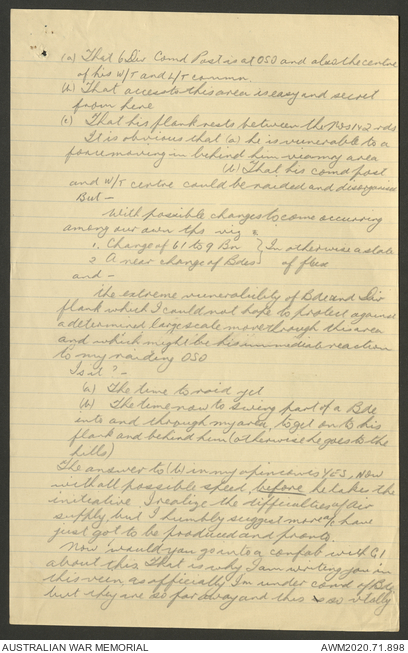 (a) That 6 Div Comd Post is at OSO and also the centre
of his W/T and L/T commn.
(b) That access to this area is easy and secret
from here
(c) That his flank rests between the Nos 1 & 2 rds
It is obvious that (a) he is vunerable to a
force moving in behind him via my area
(b) That his comd post
and W/T centre could be raided and disorganised
But -
With possible changes to come occurring
among our own tps viz :
1. Change of 61 to 9 Bn } In otherwise a state
2. A near change of Bdes } of flux
and -
the extreme vunerability of Bde and Div
flank which I could not hope to protect against
a determined large scale move through this area
and which might be his immediate reaction
to my raiding OSO
Is it? -
(a) The time to raid yet
(b) The time now to swing part of a Bde
into and through my area, to get on to his
flank and behind him (otherwise he goes to the
hills)
The answer to (b) in my opinion is YES, Now
with all possible speed, before he takes the
initiative. I realize the difficulties of air
supply, but I humbly suggest more a/c have
just got to be produced and pronto.
Now would you go into a confab with G1
about this. That is why I am writing you in
this vein as officially I'm under comd of Bde,
but they are so far away and this is so vitally
AUSTRALIAN WAR MEMORIAL
AWM2020.71.898